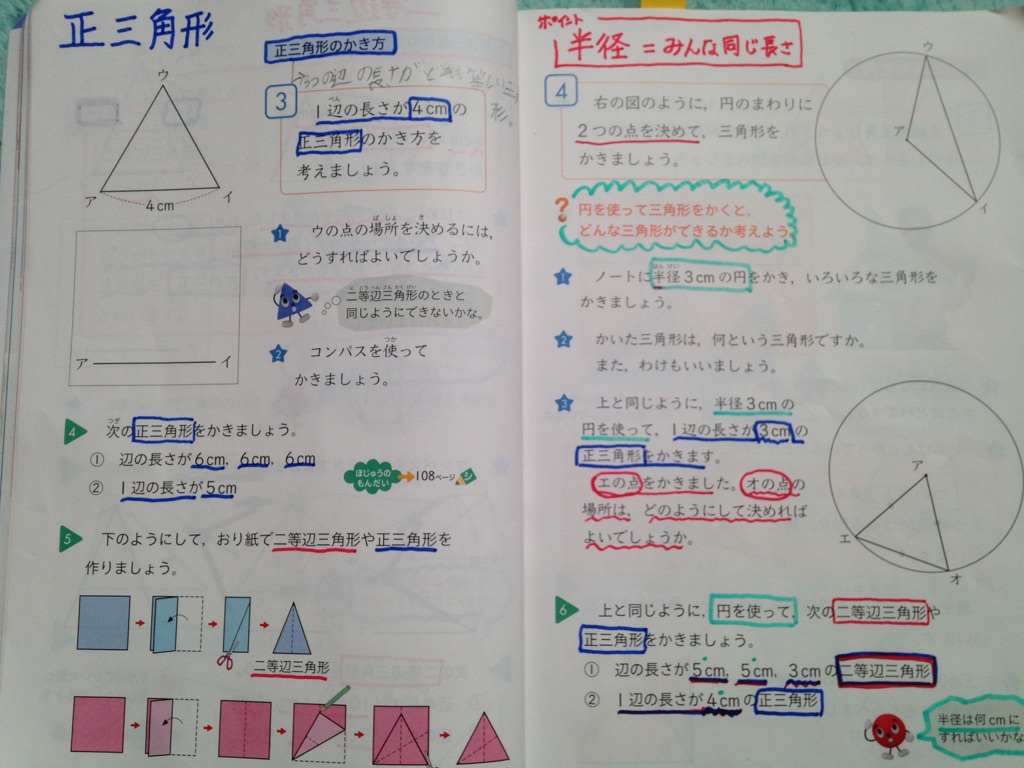 正三角形
正三角形のかき方
3
1辺の長さが4cmの
正三角形のかき方を
考えましょう。
ウ
ア
イ
4cm
1 ウの点の場所を決めるには,
どうすればよいでしょうか。
二等辺三角形のときと
同じようにできないかな。
2 コンパスを使って
かきましょう。
ア イ
4 次の正三角形をかきましょう。
① 辺の長さが6cm, 6cm, 6cm
② 1辺の長さが5cm
ほじゅうの
もんだい
108ページ
5 下のようにして, おり紙で二等辺三角形や正三角形を
作りましょう。
二等辺三角形
ポイント
半径=みんな同じ長さ
4
右の図のように, 円のまわりに
2つの点を決めて, 三角形を
かきましょう。
ウ
ア
イ
?
円を使って三角形をかくと,
どんな三角形ができるか考えよう
1 ノートに半径3cmの円をかき, いろいろな三角形を
かきましょう。
2 かいた三角形は, 何という三角形ですか。
また, わけもいいましょう。
3 上と同じように, 半径3cmの
円を使って, 1辺の長さが3cmの
正三角形をかきます。
エの点をかきました。オの点の
場所は, どのようにして決めれば
よいでしょうか。
ア
エ
オ
6 上と同じように, 円を使って, 次の二等辺三角形や
正三角形をかきましょう。
① 辺の長さが5cm, 5cm, 3cmの二等辺三角形
② 1辺の長さが4cmの正三角形
半径は何cmに
すればいいかな